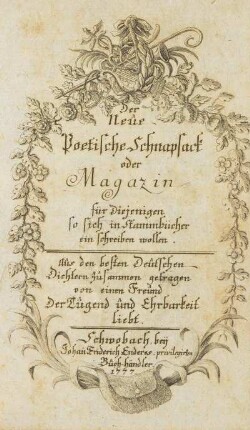 Der
Neue
Poetische Schnapsack
oder
Magazin
für Diejenigen
so sich in Stammbücher
ein schreiben wollen.
Aus den besten Deutschen
Dichtern zusammen getragen
von einen Freund
Der Tugend und Ehrbarkeit
liebt.
Schwobach, bey
Johan Friderich Enderes, privilegirten
Buch-händler
1777